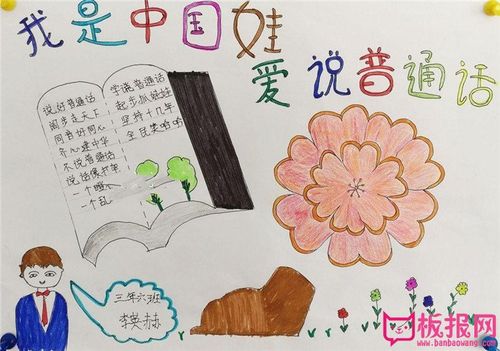 我是中国娃
爱说普通话
说好普通话
阔步走天下
同音好同心
齐心建中华
不说普通话
说话像打架
一个瞎
一个乱
学说普通话
起步抓娃娃
坚持十几年
全民笑哈哈
三年六班
李英赫
板报网
www.banbaowang.com